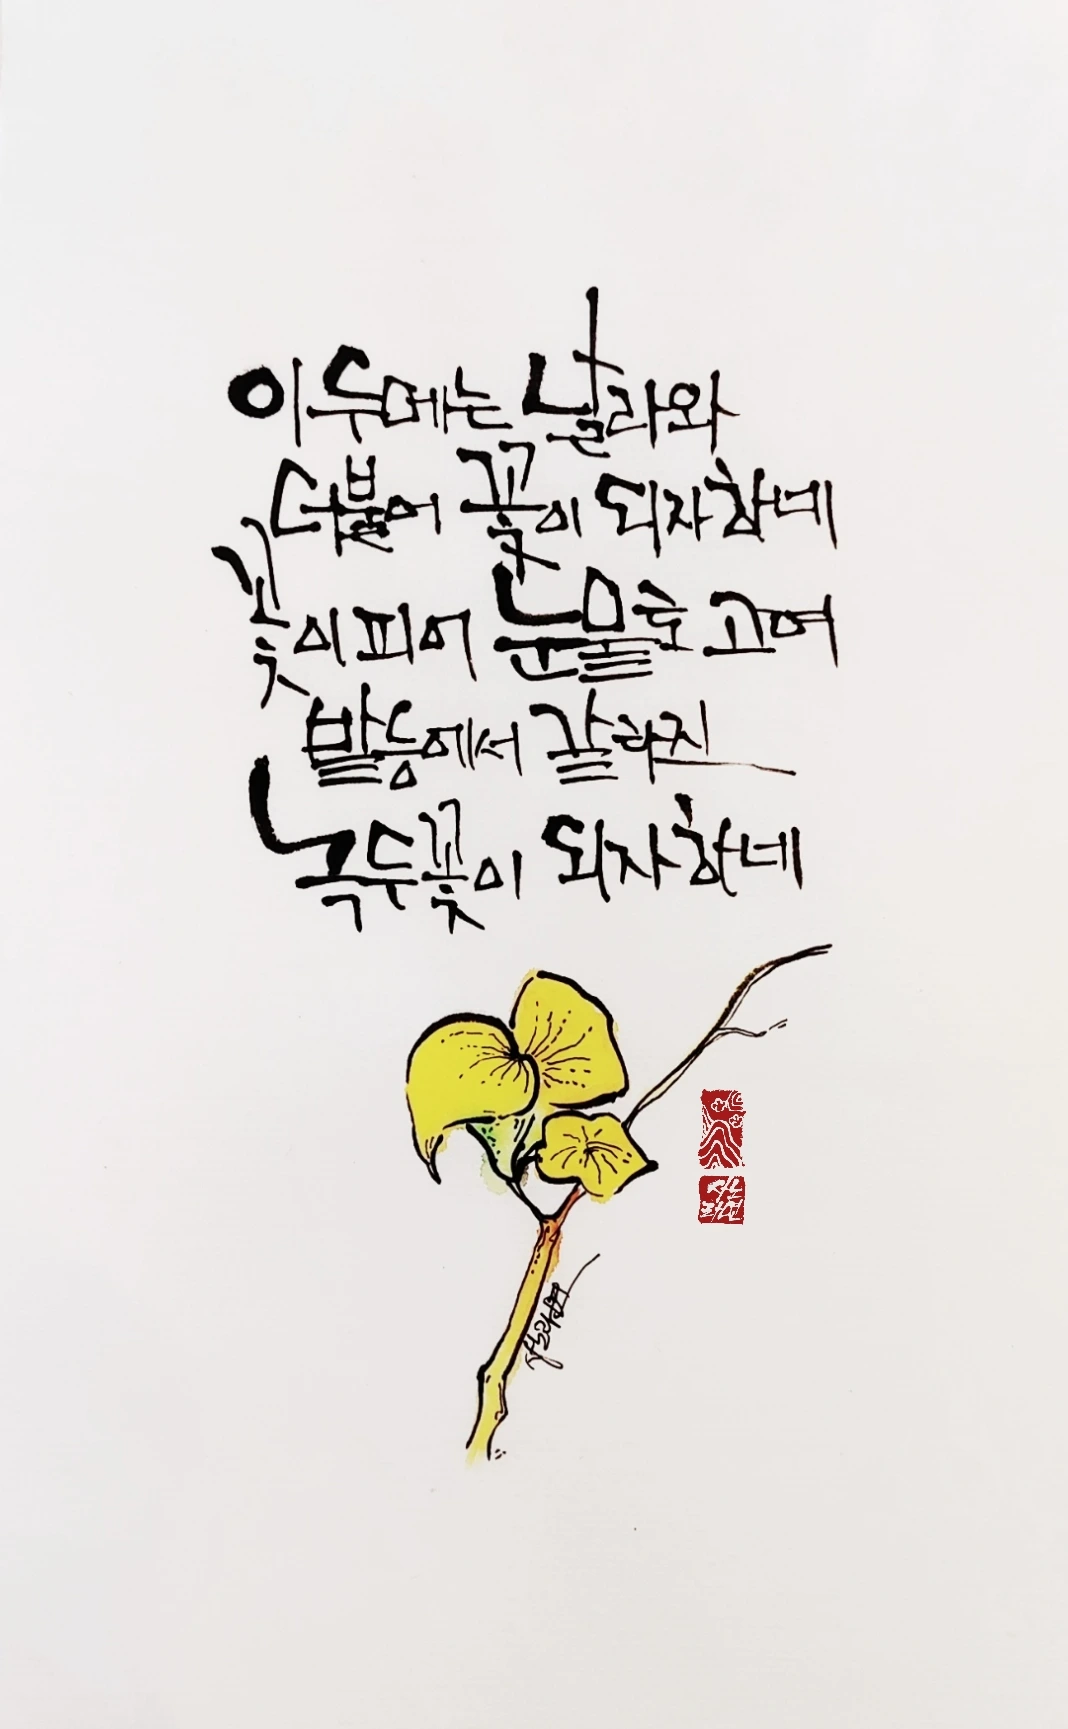 이 두메는 날라와
더불어 꽃이 되자하네
꽃이 피어 눈물로 고여
발등에서 갈라진
녹두꽃이 되자하네